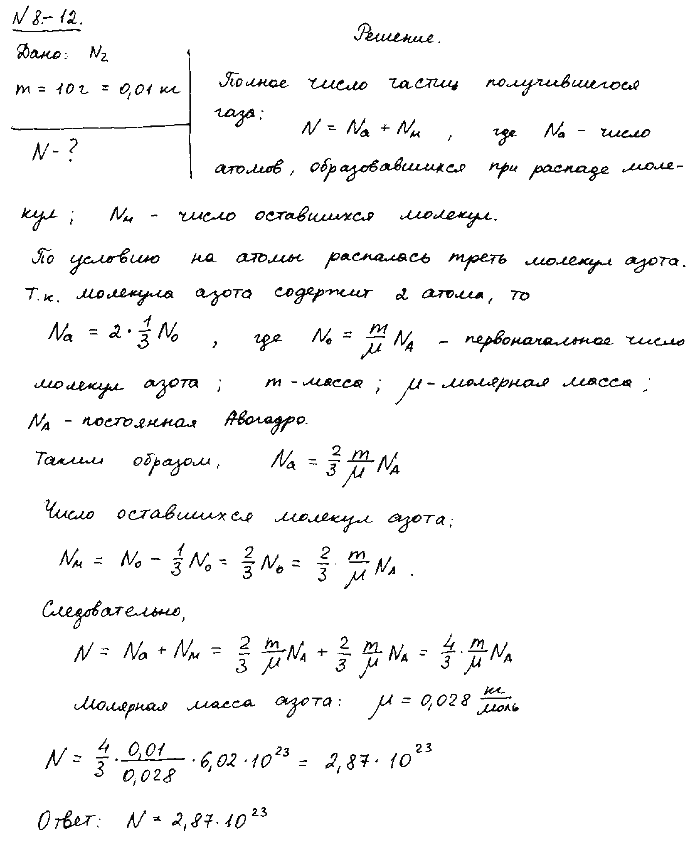 N 8-12.
Дано: N₂
m = 10 г = 0,01 кг
N - ?
Решение.
Полное число частиц получившегося
газа:
N = Nа + Nм , где Nа - число
атомов, образовавшихся при распаде моле-
кул; Nм - число оставшихся молекул.
По условию на атомы распалась треть молекул азота.
Т.к. молекула азота содержит 2 атома, то
Nа = 2 · 1/3 N₀ , где N₀ = m/μ N_A - первоначальное число
молекул азота; m - масса; μ - молярная масса;
N_A - постоянная Авогадро.
Таким образом, Nа = 2/3 m/μ N_A
Число оставшихся молекул азота:
Nм = N₀ - 1/3 N₀ = 2/3 N₀ = 2/3 · m/μ N_A .
Следовательно,
N = Nа + Nм = 2/3 m/μ N_A + 2/3 m/μ N_A = 4/3 · m/μ N_A
Молярная масса азота: μ = 0,028 кг/моль
N = 4/3 · 0,01/0,028 · 6,02 · 10²³ = 2,87 · 10²³
Ответ: N = 2,87 · 10²³